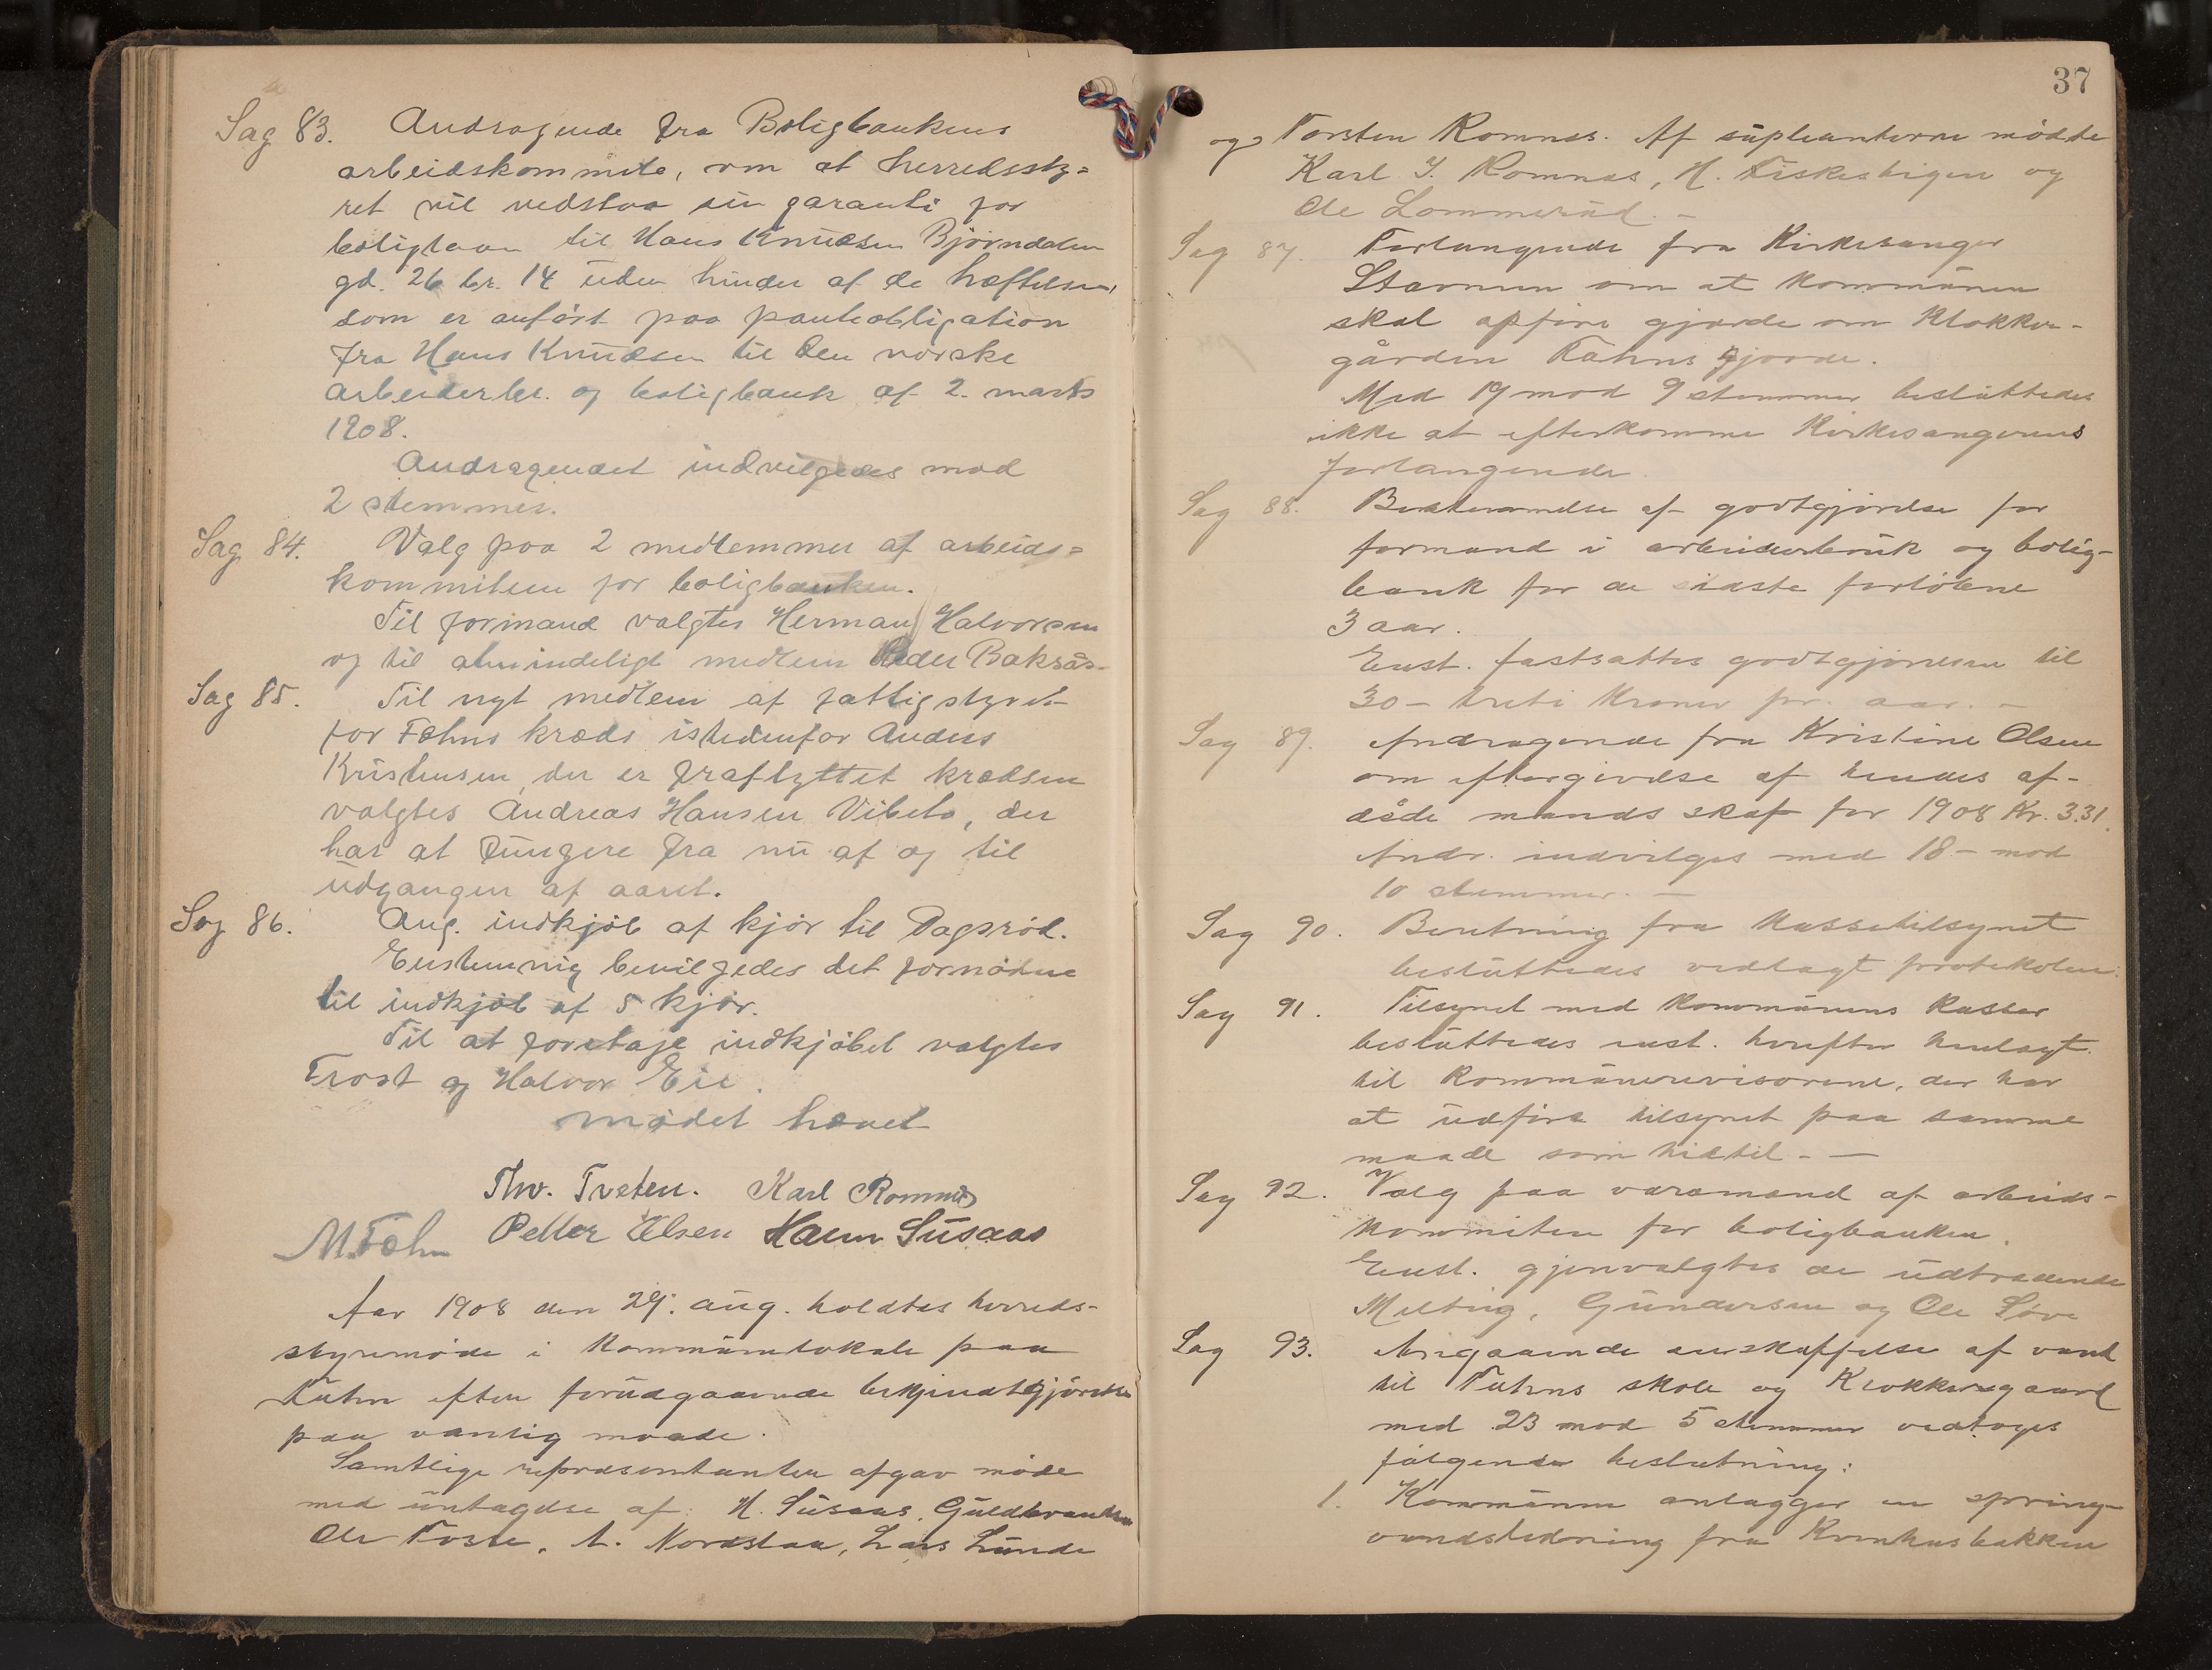 Sag 83. Andragende fra Boligbankens
arbeidskommite, om at herredssty=
ret vil vedstaa sin garanti for
boliglaan til Hans Knudsen Björndalen
gd. 26 br. 14 uden hinder af de hæftelser,
som er anfört paa panteobligation
fra Hans Knudsen til Den norske
arbeiderbr. og boligbank af 2. marts
1908.
Andragendet indvilgedes mod
2 stemmer.
Sag 84. Valg paa 2 medlemmer af arbeids=
kommiteen for boligbanken.
Til formand valgtes Herman Halvorsen
og til almindeligt medlem Peder Baksås.
Sag 85. Til nyt medlem af fattigstyret
for Fæhns kreds istedenfor Anders
Kristensen, der er fraflyttet kredsen
valgtes Andreas Hansen Vibeto, der
har at fungere fra nu af og til
udgangen af aaret.
Sag 86. Ang. indkjöb af kjör til Dagsröd.
Enstemmig bevilgedes det fornödne
til indkjöb af 5 kjör.
Til at foretage indkjöbet valgtes
Frost og Halvor Eie.
mödet hævet
Thv. Tveten. Karl Romnes
M. Fæhn Petter Olsen Hans Susaas
Aar 1908 den 29. aug. holdtes herreds-
styremöde i Kommunelokale paa
Fæhn efter forudgaaende bekjendtgjörelse
paa vanlig maade.
Samtlige repræsentanter afgav möde
med untagelse af: H. Susaas, Guldbrandsen
Ole Foste, A. Nordstaa, Lars Lunde
37
og Torsten Romnes. Af supleanterne mödte
Karl J. Romnes, H. Fiskestigen og
Ole Lommerud. –
Sag 87. Forlangende fra Kirkesanger
Stavnum om at Kommunen
skal opföre gjærde om Klokker-
gården Fæhns gjorde.
Med 19 mod 9 stemmer besluttedes
ikke at efterkomme Kirkesangerens
forlangende.
Sag 88. Bestemmelse af godtgjörelse for
formand i arbeiderbruk og bolig-
bank for de sidste forlöbne
3 aar.
Enst. fastsattes godtgjörelsen til
30 – treti kroner pr. aar. –
Sag 89. Andragende fra Kristine Olsen
om eftergivelse af hendes af-
döde mands skat for 1908 Kr. 3.31.
Andr. indvilges med 18 – mod
10 stemmer. –
Sag 90. Beretning fra Kassetilsynet
besluttedes vedlagt protokolen.
Sag 91. Tilsynet med Kommunens Kasser
besluttedes enst. herefter henlagt
til Kommunerevisorene, der har
at udföre tilsynet paa samme
maade som hidtil. –
Sag 92. Valg paa varamænd af arbeids-
kommiteen for boligbanken.
Enst. gjenvalgtes de udtrædende
Melteig, Gundersen og Ole Söve
Sag 93. Angaaende anskaffelse af vand
til Fæhns skole og Klokkergaard
med 23 mod 5 stemmer vedtoges
fölgende beslutning:
1. Kommunen anlægger en spring-
vandsledning fra Kvernhusbakken